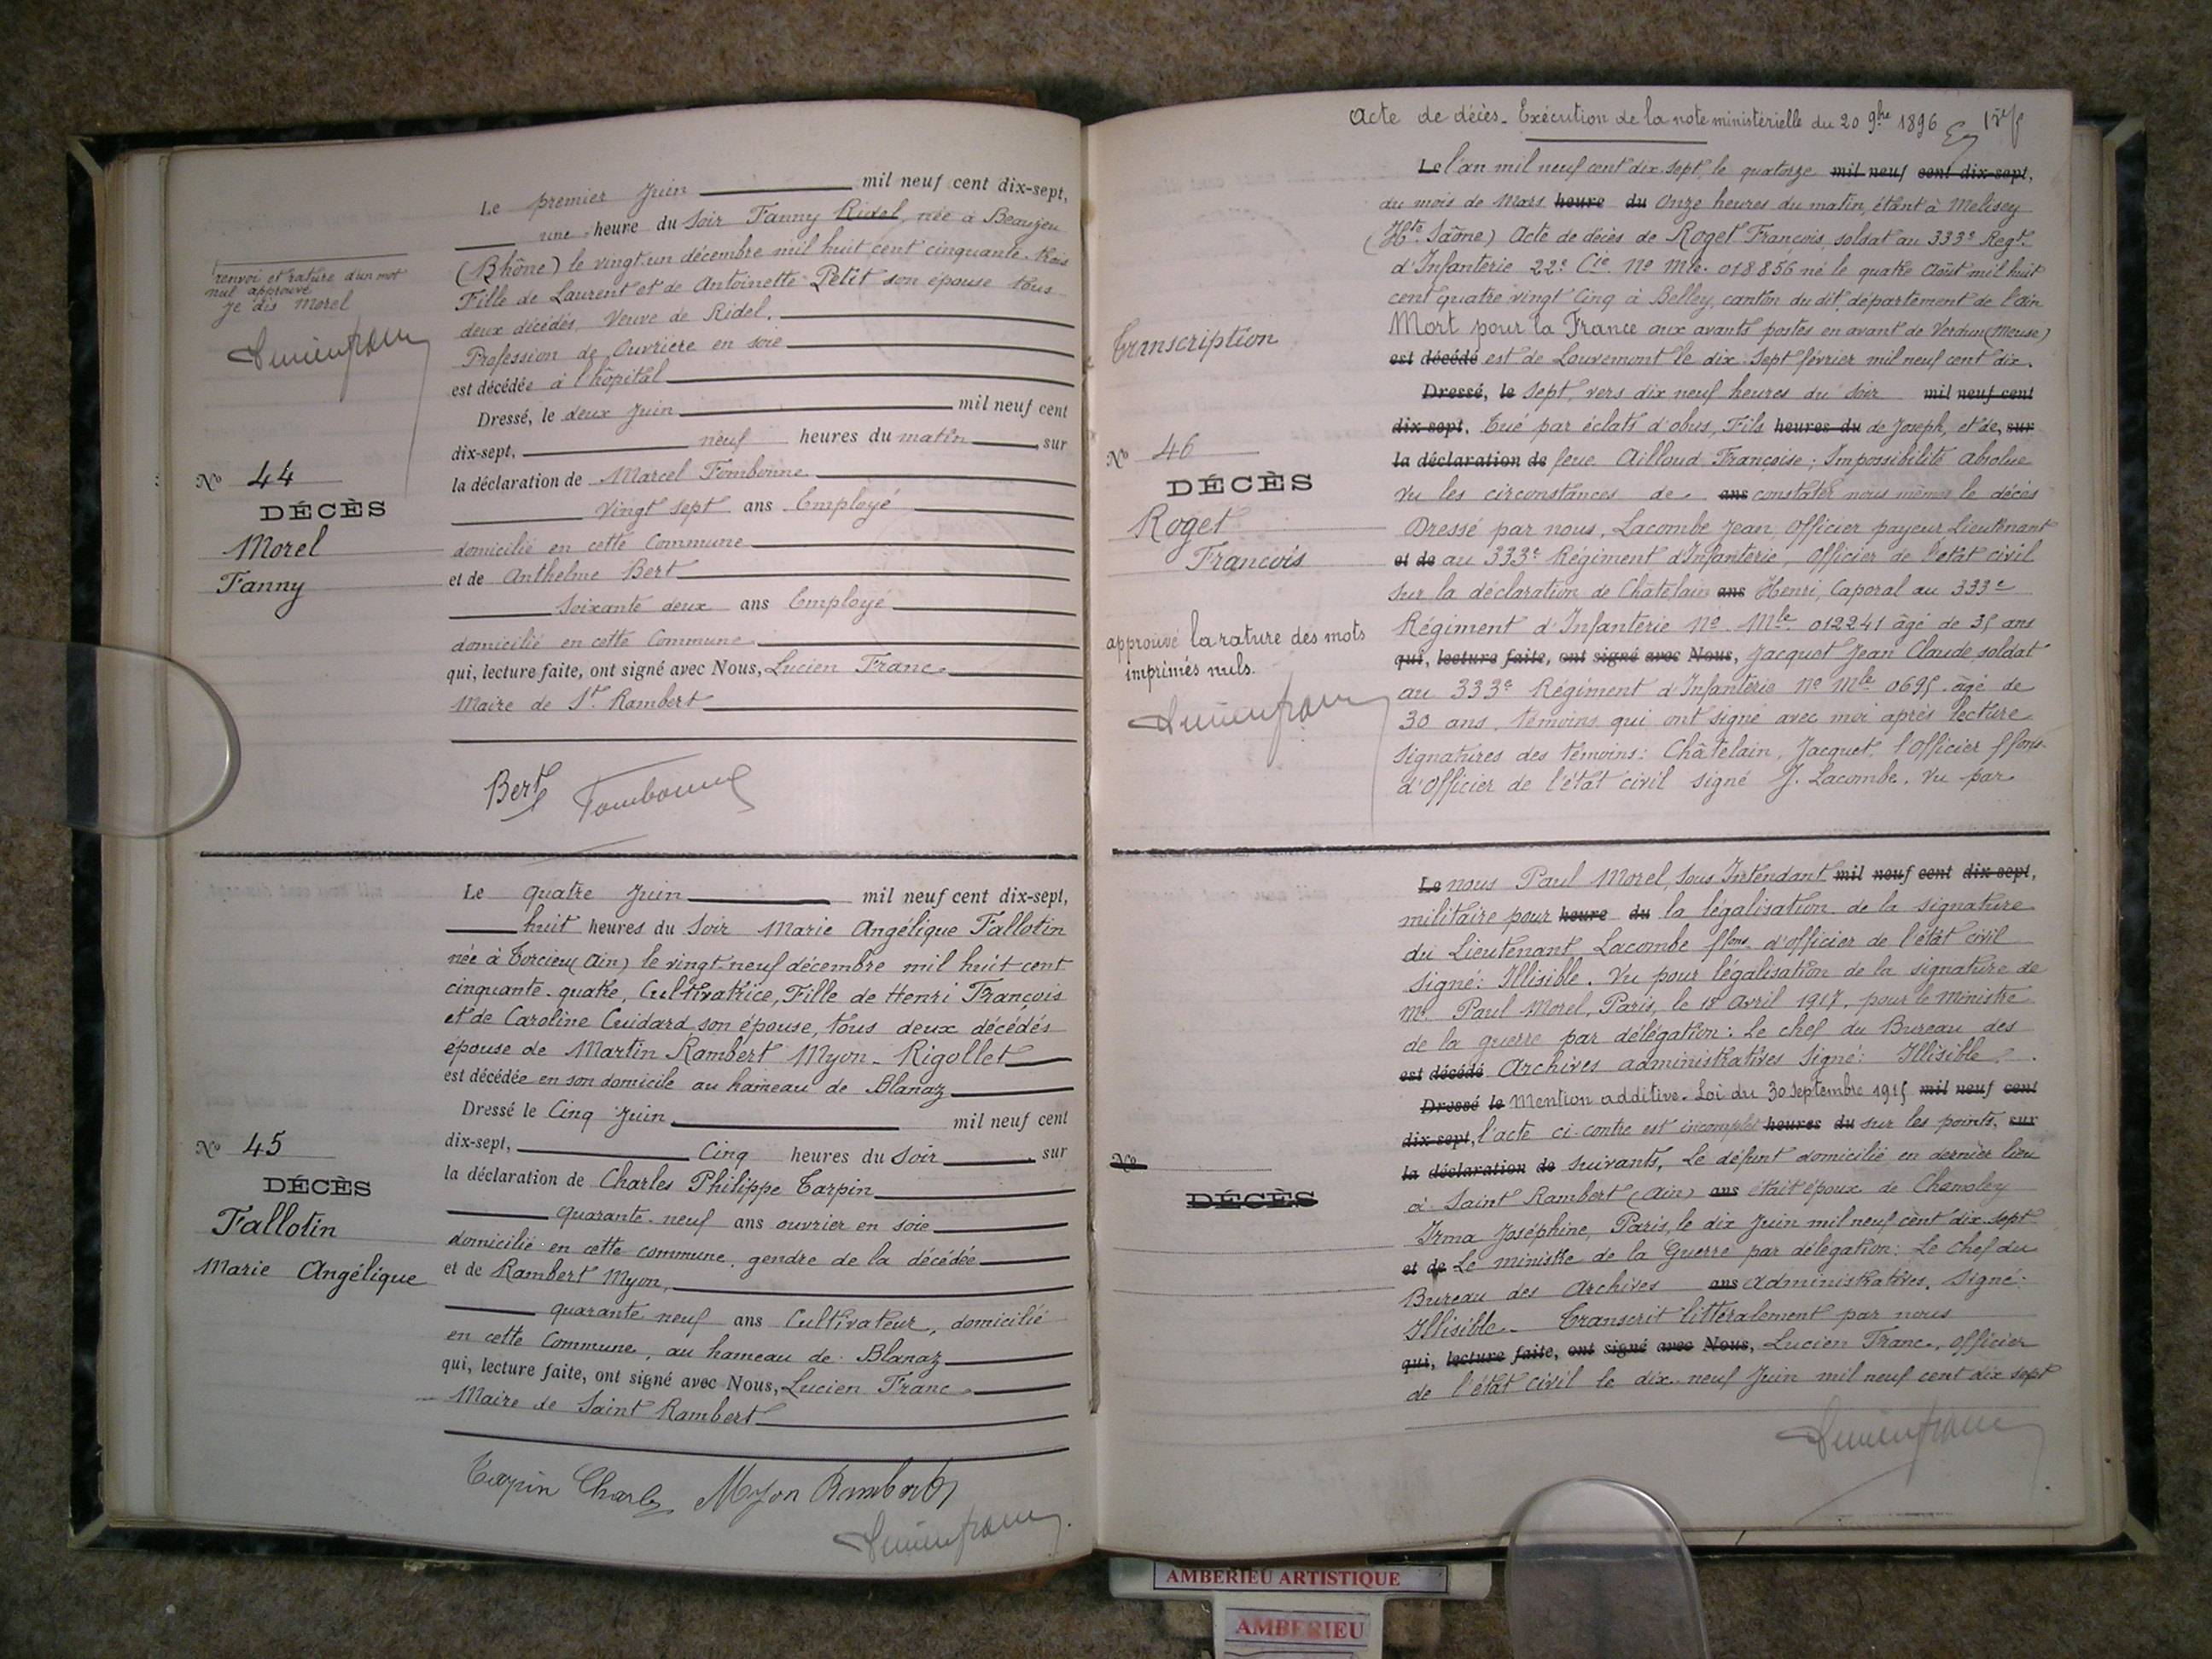 Le premier Juin mil neuf cent dix-sept,
une heure du Soir Fanny Ridel, née à Beaujeu
(Rhône) le vingt-un décembre mil huit cent cinquante-trois
Fille de Laurent et de Antoinette Petit son épouse tous
deux décédés, Veuve de Ridel.
Profession de Ouvriere en soie
est décédée à l'hôpital
Dressé, le deux Juin mil neuf cent
dix-sept, neuf heures du matin, sur
la déclaration de Marcel Fombonne
vingt sept ans Employé
domicilié en cette Commune
et de Anthelme Bert
Soixante deux ans Employé
domicilié en cette Commune
qui, lecture faite, ont signé avec Nous, Lucien Franc
Maire de St. Rambert
Bert Fombonne
renvoi et rature d'un mot
nul approuvé
Je dis Morel
No 44
DÉCÈS
Morel
Fanny
Le quatre Juin mil neuf cent dix-sept,
huit heures du Soir Marie Angélique Fallotin
née à Torcieu (Ain) le vingt-neuf décembre mil huit cent
cinquante-quatre, Cultivatrice, Fille de Henri François
et de Caroline Cuidard son épouse, tous deux décédés
épouse de Martin Rambert Myon-Rigollet
est décédée en son domicile au hameau de Blanaz
Dressé le Cinq Juin mil neuf cent
dix-sept, Cinq heures du Soir, sur
la déclaration de Charles Philippe Tarpin
quarante-neuf ans ouvrier en soie
domicilié en cette commune, gendre de la décédée
et de Rambert Myon,
quarante neuf ans Cultivateur, domicilié
en cette Commune, au hameau de Blanaz
qui, lecture faite, ont signé avec Nous, Lucien Franc
Maire de Saint Rambert
Tarpin Charles Myon Rambert
Lucien Franc
No 45
DÉCÈS
Fallotin
Marie Angélique
Acte de décès. Exécution de la note ministérielle du 20 9bre 1896
Le l'an mil neuf cent dix-sept, le quatorze mil neuf cent dix-sept,
du mois de Mars heure du Onze heures du matin, étant à Melisey
(Hte Saône) Acte de décès de Roget François, soldat au 333e Regt.
d'Infanterie 22e Cie No Mle. 018856 né le quatre Août mil huit
cent quatre vingt Cinq à Belley, canton du dit, département de l'ain
Mort pour la France aux avants postes en avant de Verdun (Meuse)
est décédé est de Louvemont le dix-sept février mil neuf cent dix.
Dressé, le sept, vers dix neuf heures du Soir mil neuf cent
dix-sept, Tué par éclats d'obus, Fils heures du de Joseph, et de, sur
la déclaration de feue Ailloud Françoise; Impossibilité absolue
vu les circonstances de ans constater nous mêmes le décès
Dressé par nous, Lacombe Jean, Officier payeur Lieutenant
et de au 333e Régiment d'Infanterie, Officier de l'etat civil
sur la déclaration de Châtelain ans Henri, Caporal au 333e
Régiment d'Infanterie No Mle 012241 âgé de 35 ans
qui, lecture faite, ont signé avec Nous, Jacquet Jean Claude, soldat
au 333e Régiment d'Infanterie No Mle 0695. âgé de
30 ans, témoins qui ont signé avec moi après lecture
Signatures des témoins: Châtelain, Jacquet, l'Officier ffons
d'Officier de l'état civil signé J. Lacombe. Vu par
Transcription
No 46
DÉCÈS
Roget
François
approuvé la rature des mots
imprimés nuls.
Le nous Paul Morel, Sous Intendant mil neuf cent dix-sept,
militaire pour heure du la légalisation de la signature
du Lieutenant Lacombe ffons d'officier de l'état civil
signé: Illisible. Vu pour légalisation de la signature de
Mr. Paul Morel, Paris, le 18 Avril 1917, pour le Ministre
de la guerre par délégation: Le chef du Bureau des
est décédé Archives administratives Signé: Illisible.
Dressé le Mention additive. Loi du 30 Septembre 1915 mil neuf cent
dix-sept, l'acte ci-contre est incomplet heures du sur les points, sur
la déclaration de suivants, Le défunt domicilié en dernier lieu
à Saint Rambert (Ain) ans était époux de Chamoley
Irma Joséphine, Paris, le dix Juin mil neuf cent dix-sept
et de Le ministre de la Guerre par délégation: Le chef du
Bureau des Archives ans administratives. Signé:
Illisible. Transcrit littéralement par nous
qui, lecture faite, ont signé avec Nous, Lucien Franc, Officier
de l'état civil le dix-neuf Juin mil neuf cent dix sept
Lucien Franc
No
DÉCÈS
AMBERIEU ARTISTIQUE
AMBERIEU